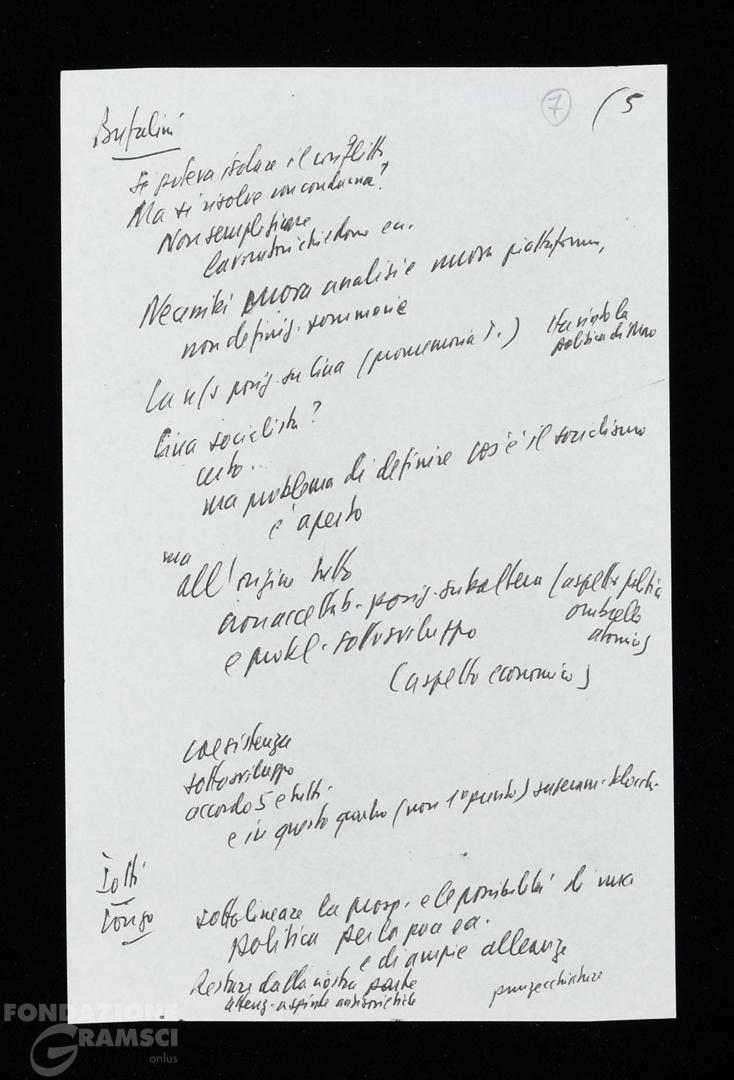 7 (5
Bufalini
Si poteva isolare il conflitto
Ma si risolve con condanna?
Non semplificare
lavoratori chiedono ec.
Necessità nuova analisi e nuova piattaforma,
non definiz. sommarie
La n/s posiz. su Cina (promemoria T.)
politica di
Cina socialista?
certo..
ma problema di definire cos'è il socialismo
è aperto
ma
all'origine tutto
non accettab. posiz. subalterna (aspetto politico
ombrello
atomico)
e probl. sottosviluppo
(aspetto economico)
coesistenza
sottosviluppo
accordo 5 e tutti.
e in questo quadro (non 1° punto) superam. blocchi.
Iotti
Longo
sottolineare la prosp. e le possibilità di una
politica per la pace ec.
e di ampie alleanze
Restare dalla nostra parte
attenz. a spinte antisovietiche
punzecchiature
FONDAZIONE
GRAMSCI
onlus